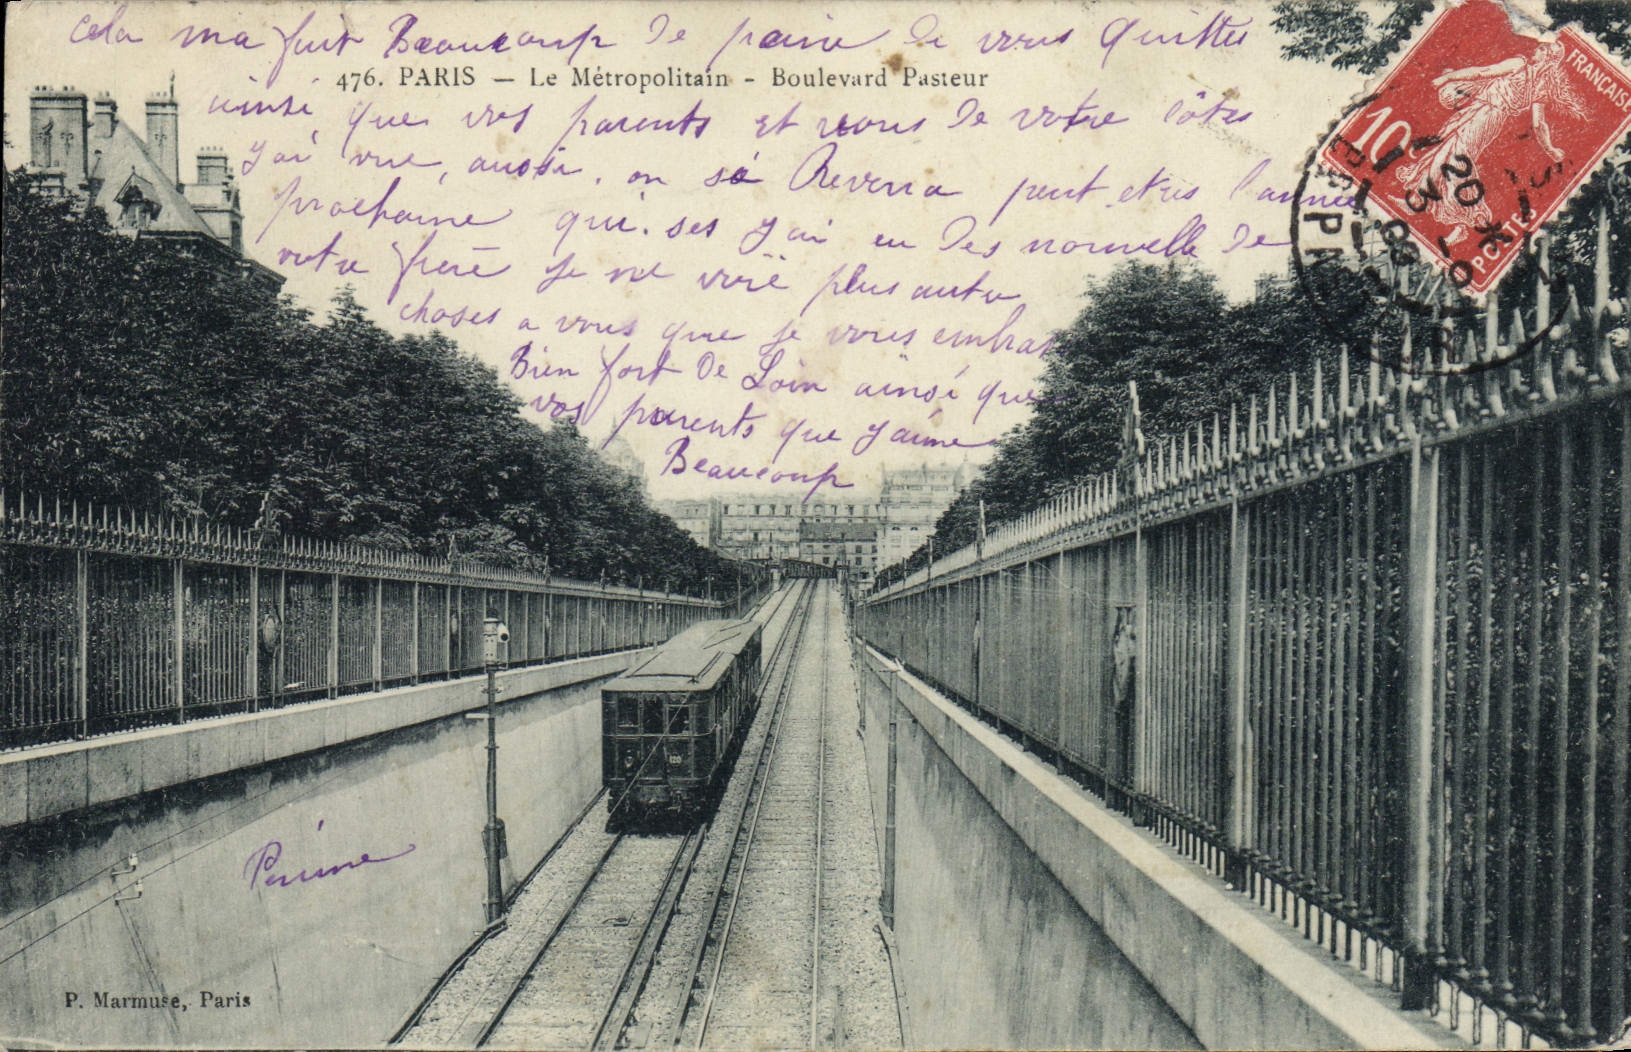 cela ma fait Beaucoup de peine de vous quitter
476. PARIS — Le Métropolitain - Boulevard Pasteur
ainsi que vos parents et vous de votre côtes
j'ai vue, aussi. on sé Reverra peut etres l'année
prochaine qui. ses j'ai eu des nouvelle de
votre frere je ne voie plus autre
choses a vous que je vous embras
Bien fort de Loin ainsi que
vos parents que j'aime
Beaucoup
FRANÇAIS
10
POSTES
120
P. Marmuse, Paris